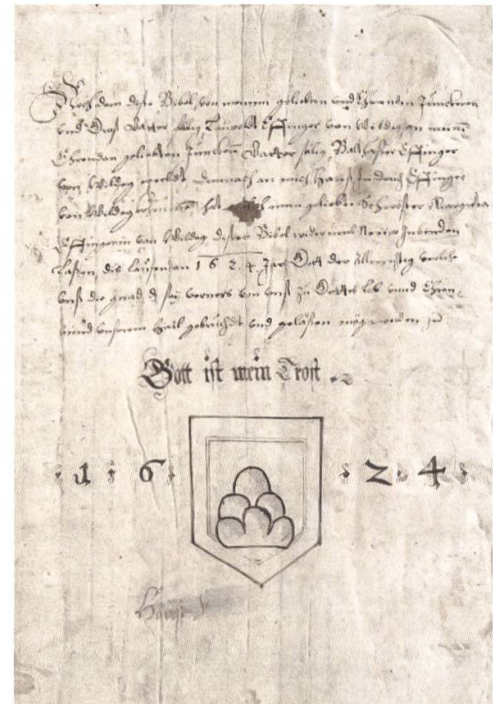 Nach dem diese Bibel, von meinem geliebten und Ehrenden Junckeren
und Groß Vatter sälig Thüring Effinger von Wildeg an mein
Ehrenden geliebten Junckern Vatter sälig, Balthaser Effinger
von Wildeg ererbt, Demnach an mich Hans Ludwig Effinger
von Wildeg hat mein geliebte Schwöster Margreta
Effingerin von Wildeg diesere Bibel widerumb Neüw Inbinden
laßen, des lauffenden 1 6 2 4 Jar Gott der Allmechtig verliche
unß die gnad dz sey von unß zu Gottes lob unnd Ehren,
unnd unserem heil gebrucht und geläsen mög werden
Gott ist mein Trost
1 6 2 4